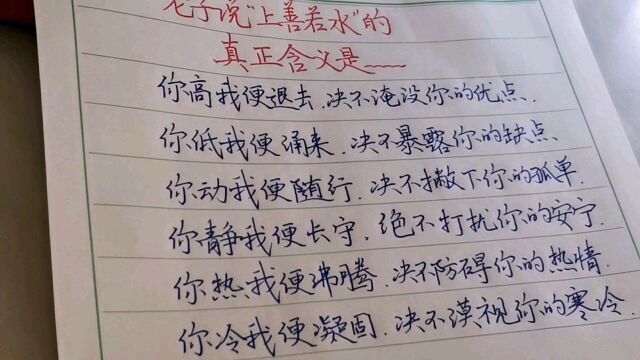 老子说"上善若水"的
真正含义是……
你高我便退去.决不淹没你的优点.
你低我便涌来.决不暴露你的缺点.
你动我便随行.决不撇下你的孤单.
你静我便长守.绝不打扰你的安宁.
你热我便沸腾.决不防碍你的热情.
你冷我便凝固.决不漠视你的寒冷.